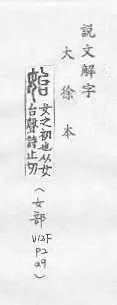 說文解字
大徐本
女之初也从女
台聲詩止切
(女部
V12F
P2
a9)